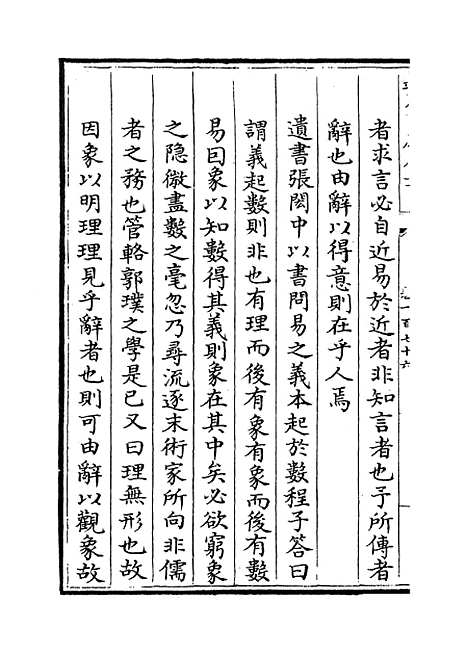 者求言必自近易於近者非知言者也予所傳者
辭也由辭以得意則在乎人焉
遺書張閎中以書問易之義本起於數程子答曰
謂義起數則非也有理而後有象有象而後有數
易因象以知數得其義則象在其中矣必欲窮象
之隐微盡數之毫忽乃尋流逐末術家所向非儒
者之務也管輅郭璞之學是已又曰理無形也故
因象以明理理見乎辭者也則可由辭以觀象故
卷一百七十六